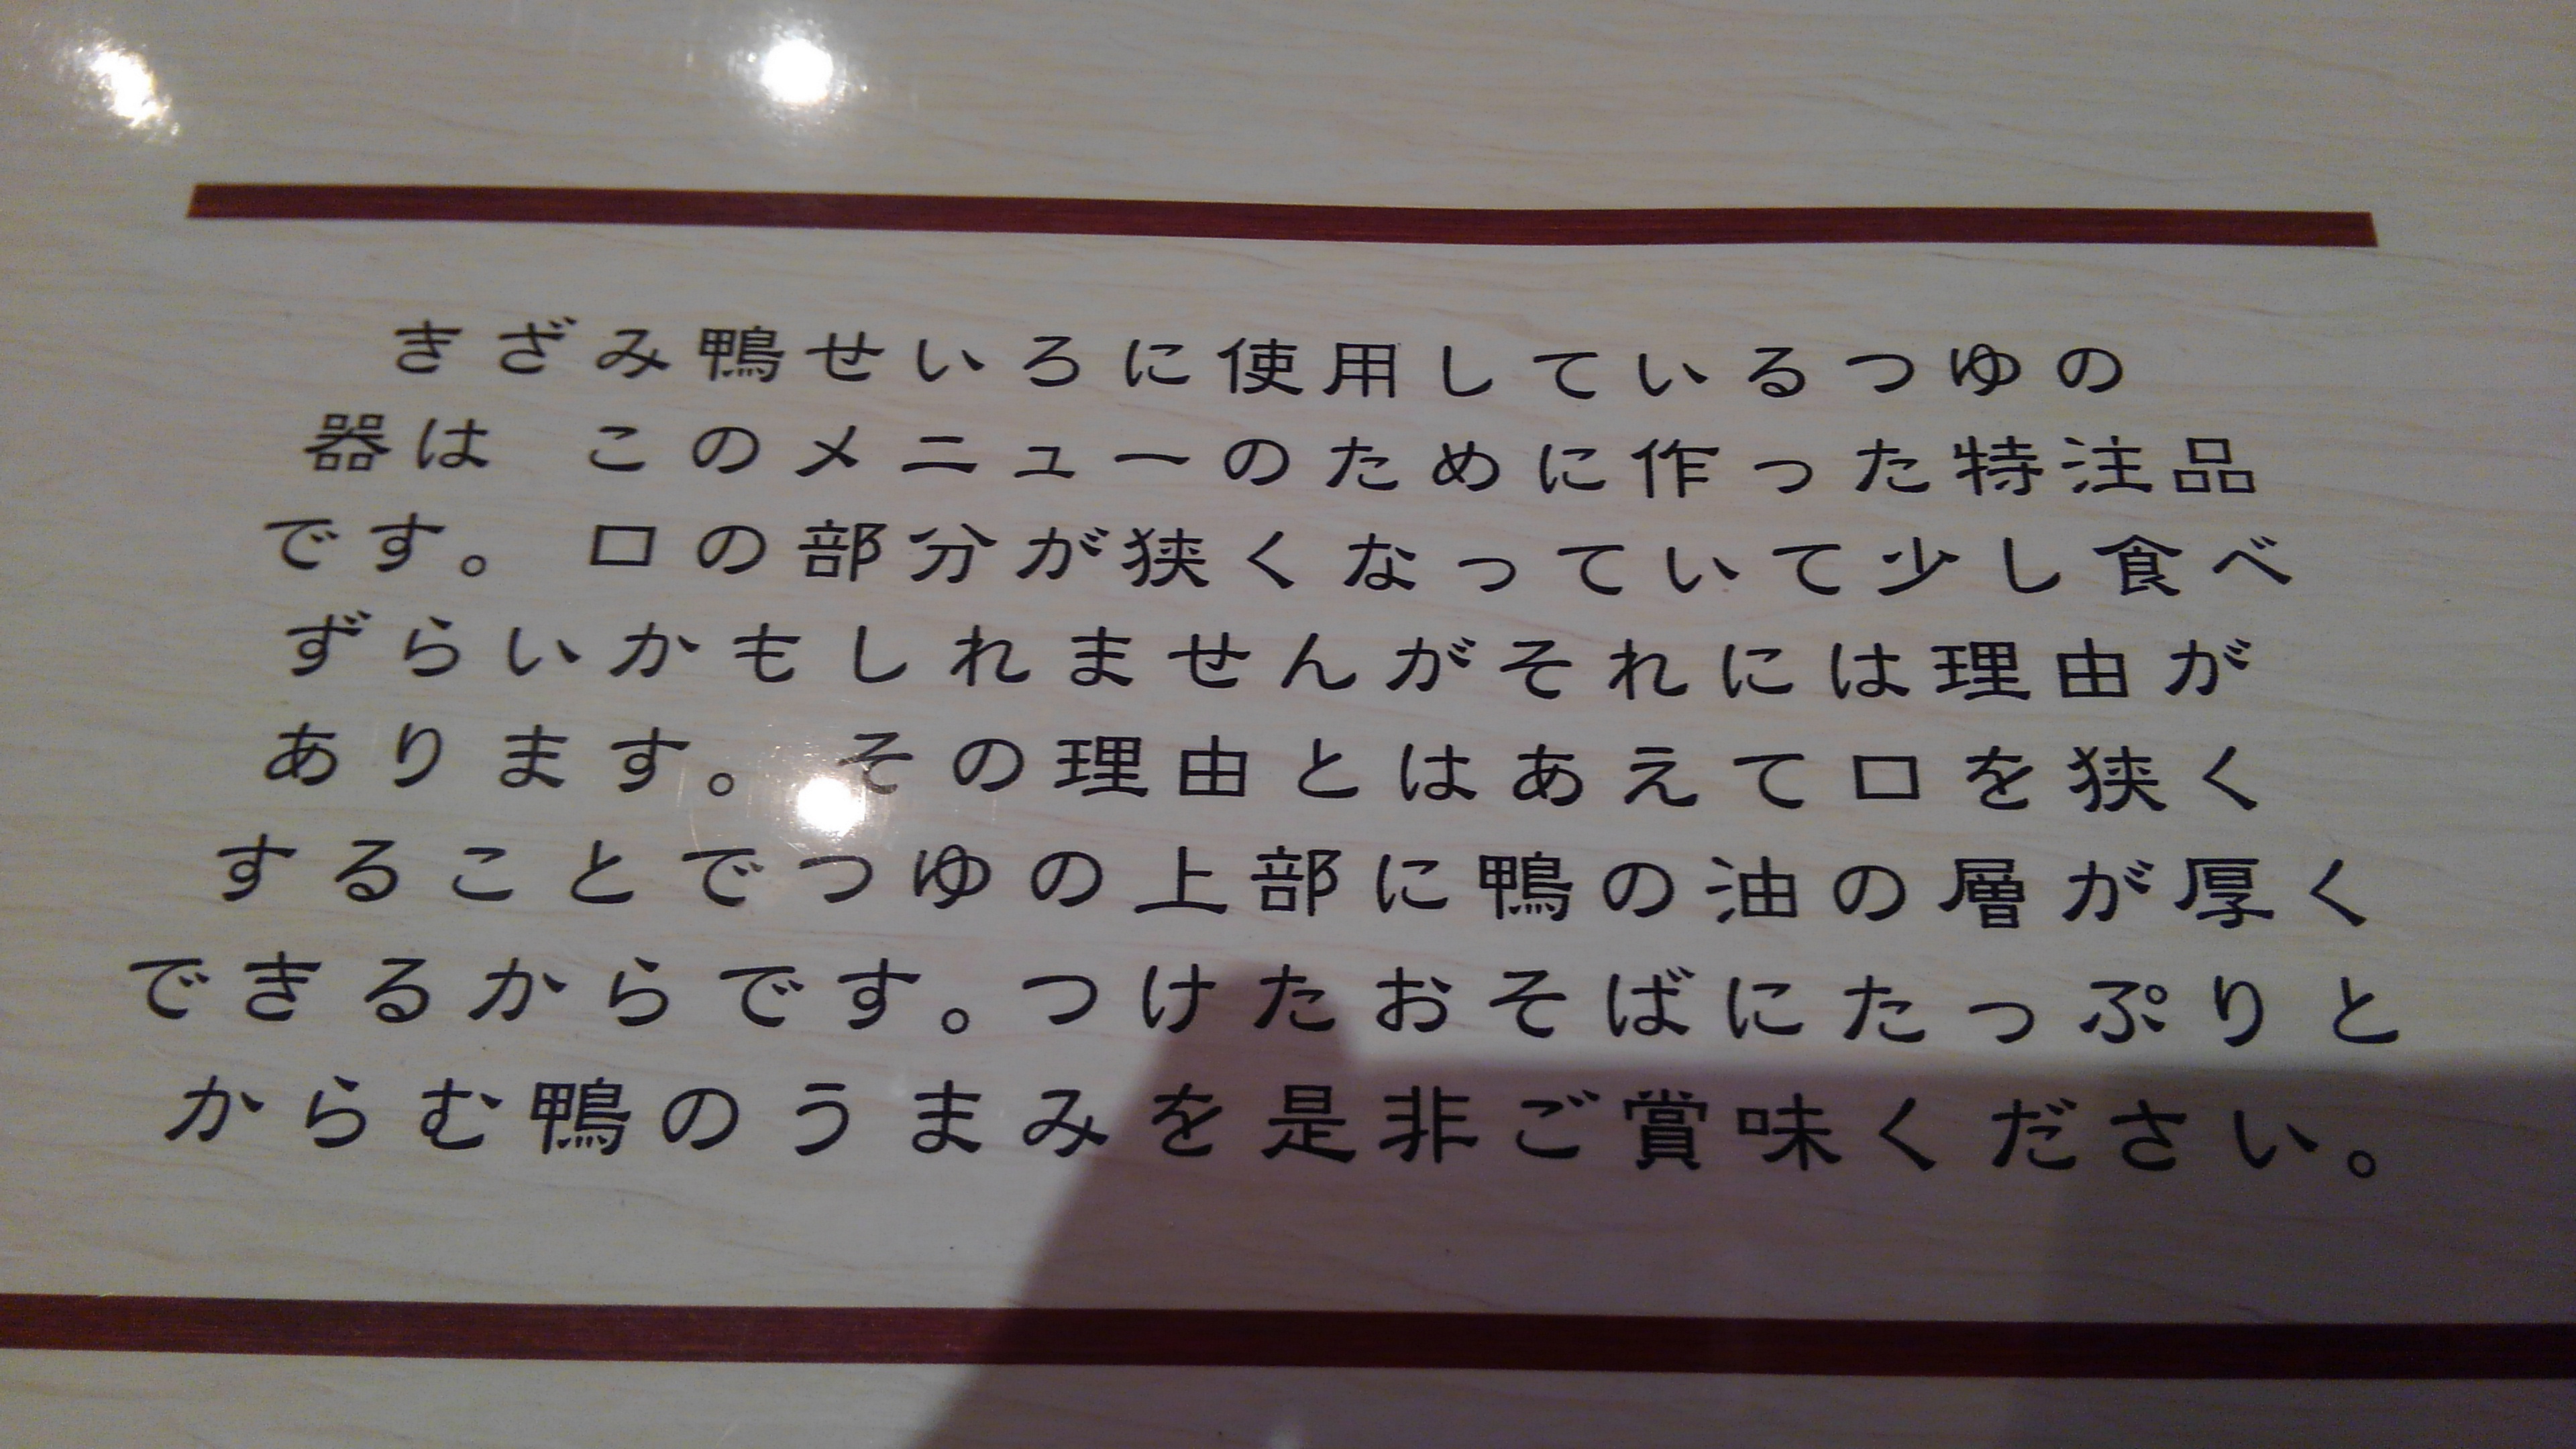 きざみ鴨せいろに使用しているつゆの
器は このメニューのために作った特注品
です。 口の部分が狭くなっていて少し食べ
ずらいかもしれませんがそれには理由が
あります。 その理由とはあえて口を狭く
することでつゆの上部に鴨の油の層が厚く
できるからです。つけたおそばにたっぷりと
からむ鴨のうまみを是非ご賞味ください。